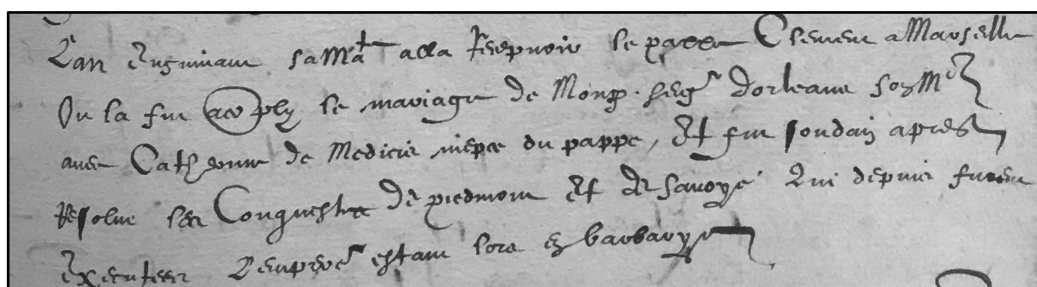 Lan ensuivant sa Ma.t alla Recepvoir le pappe Clement a Marseille
Ou la fut acoply le mariage de Mons.r seig.r dorleans
avec Catherine de Medicis niepce du pappe, Et fut soudain apres
Resolue les Conquestes de piedmont Et de Savoye Qui depuis furent
Executees Lempereur estant lors en barbarye